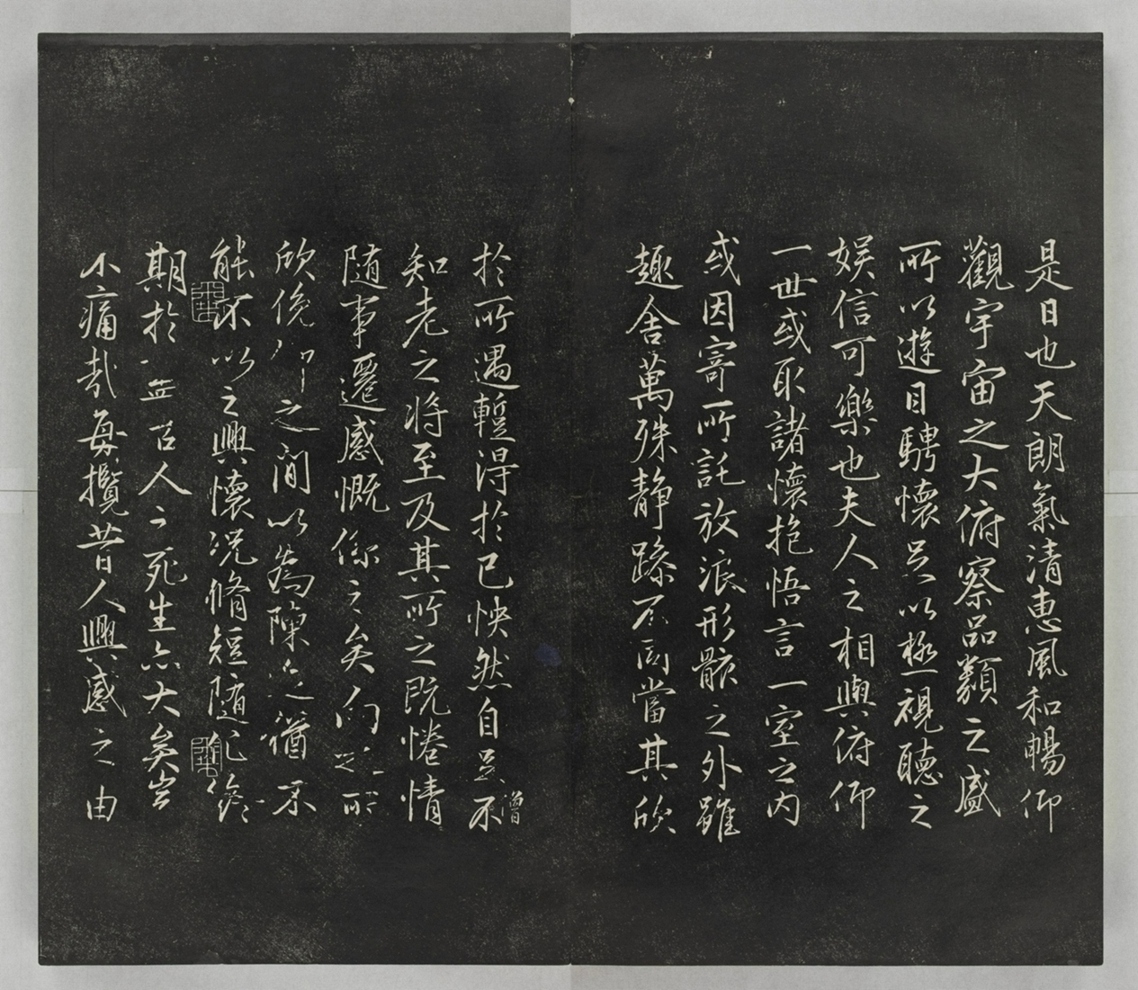 是日也天朗氣清惠風和暢仰
觀宇宙之大俯察品類之盛
所以遊目騁懷足以極視聽之
娛信可樂也夫人之相與俯仰
一世或取諸懷抱悟言一室之內
或因寄所託放浪形骸之外雖
趣舍萬殊靜躁不同當其欣
僧
於所遇蹔得於己怏然自足不
知老之將至及其所之既惓情
隨事遷感慨係之矣向之所
欣俛仰之間以為陳迹猶不
能不以之興懷況脩短隨化終
期於盡古人云死生亦大矣豈
不痛哉每攬昔人興感之由